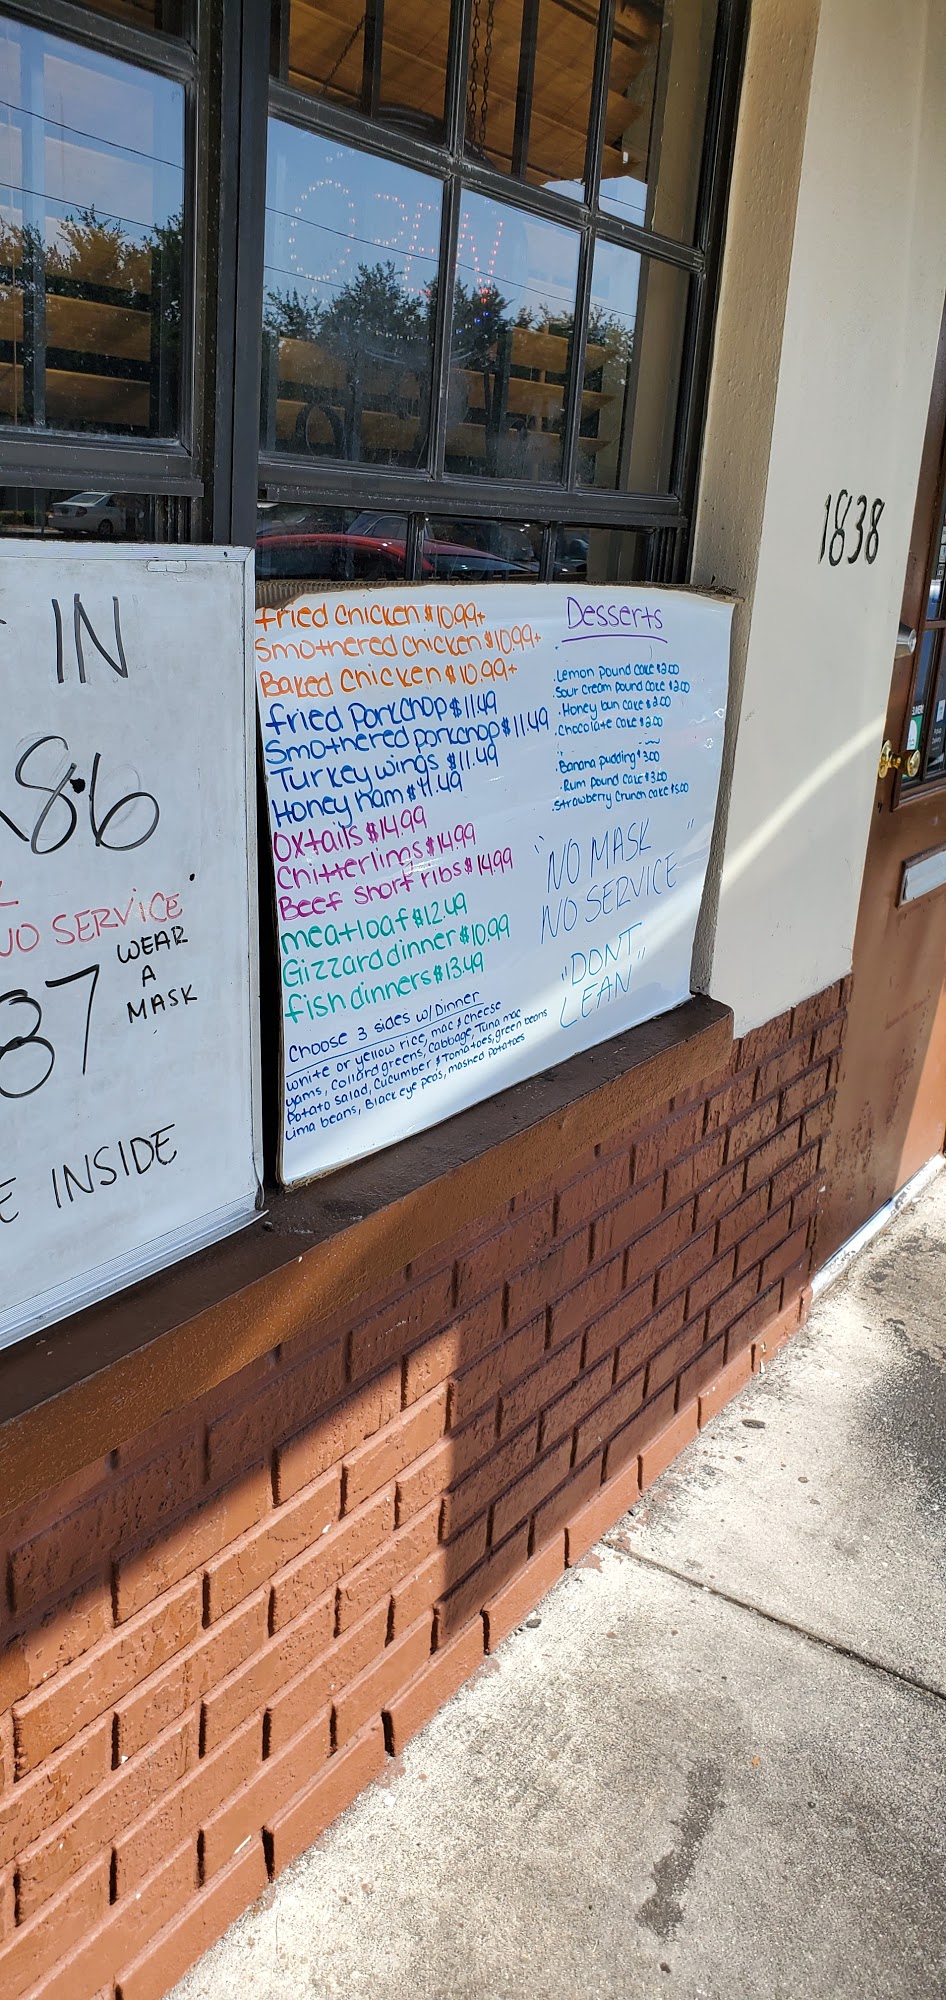 OPEN
1838
IN
86
NO SERVICE
WEAR
A
MASK
37
INSIDE
Fried Chicken $10.99+
Smothered Chicken $10.99+
Baked Chicken $10.99+
Fried Porkchop $11.49
Smothered porkchop $11.49
Turkey wings $11.49
Honey ham $11.49
Oxtails $14.99
Chitterlings $14.99
Beef short ribs $14.99
meatloaf $12.49
Gizzard dinner $10.99
fish dinners $13.49
Choose 3 sides w/Dinner
white or yellow rice, mac & cheese
yams, Collard greens, Cabbage, Tuna mac
Potato salad, Cucumber & Tomatoes, green beans
Lima beans, Black eye peas, mashed potatoes
Desserts
.Lemon pound cake $2.00
.Sour cream pound cake $2.00
.Honey bun cake $2.00
.Chocolate cake $2.00
.Banana pudding $3.00
.Rum pound cake $3.00
.Strawberry Crunch cake $5.00
"NO MASK "
NO SERVICE
"DONT "
LEAN